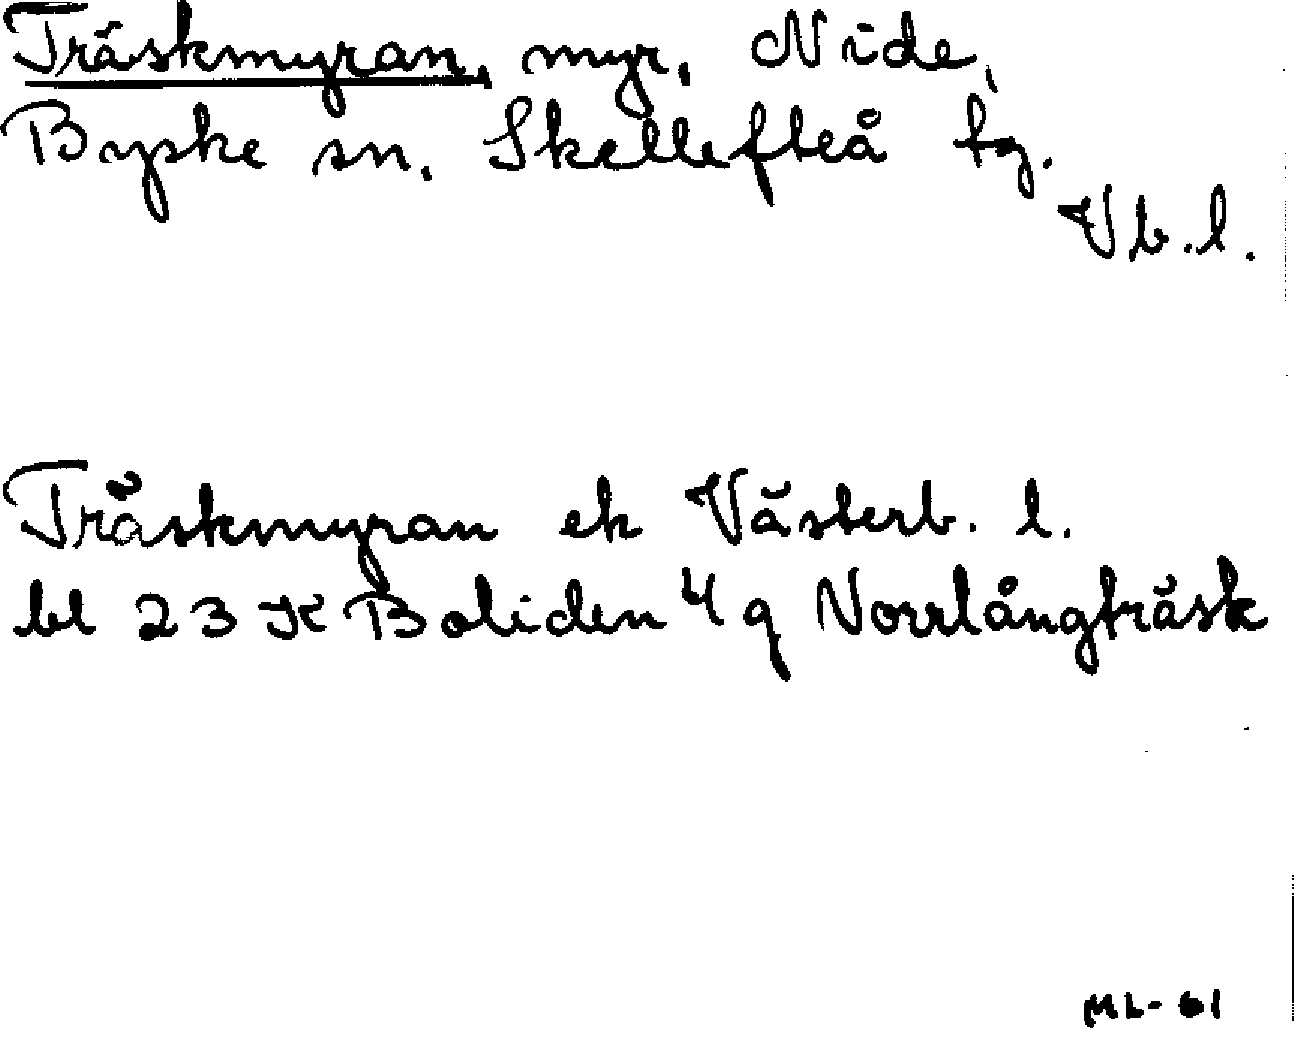 Träskmyran, myr, Nide,
Byske sn. Skellefteå tg.
Vb.l.
Träskmyran ek Västerb. l.
bl 23 K Boliden 4 g Norrlångträsk
ML-61